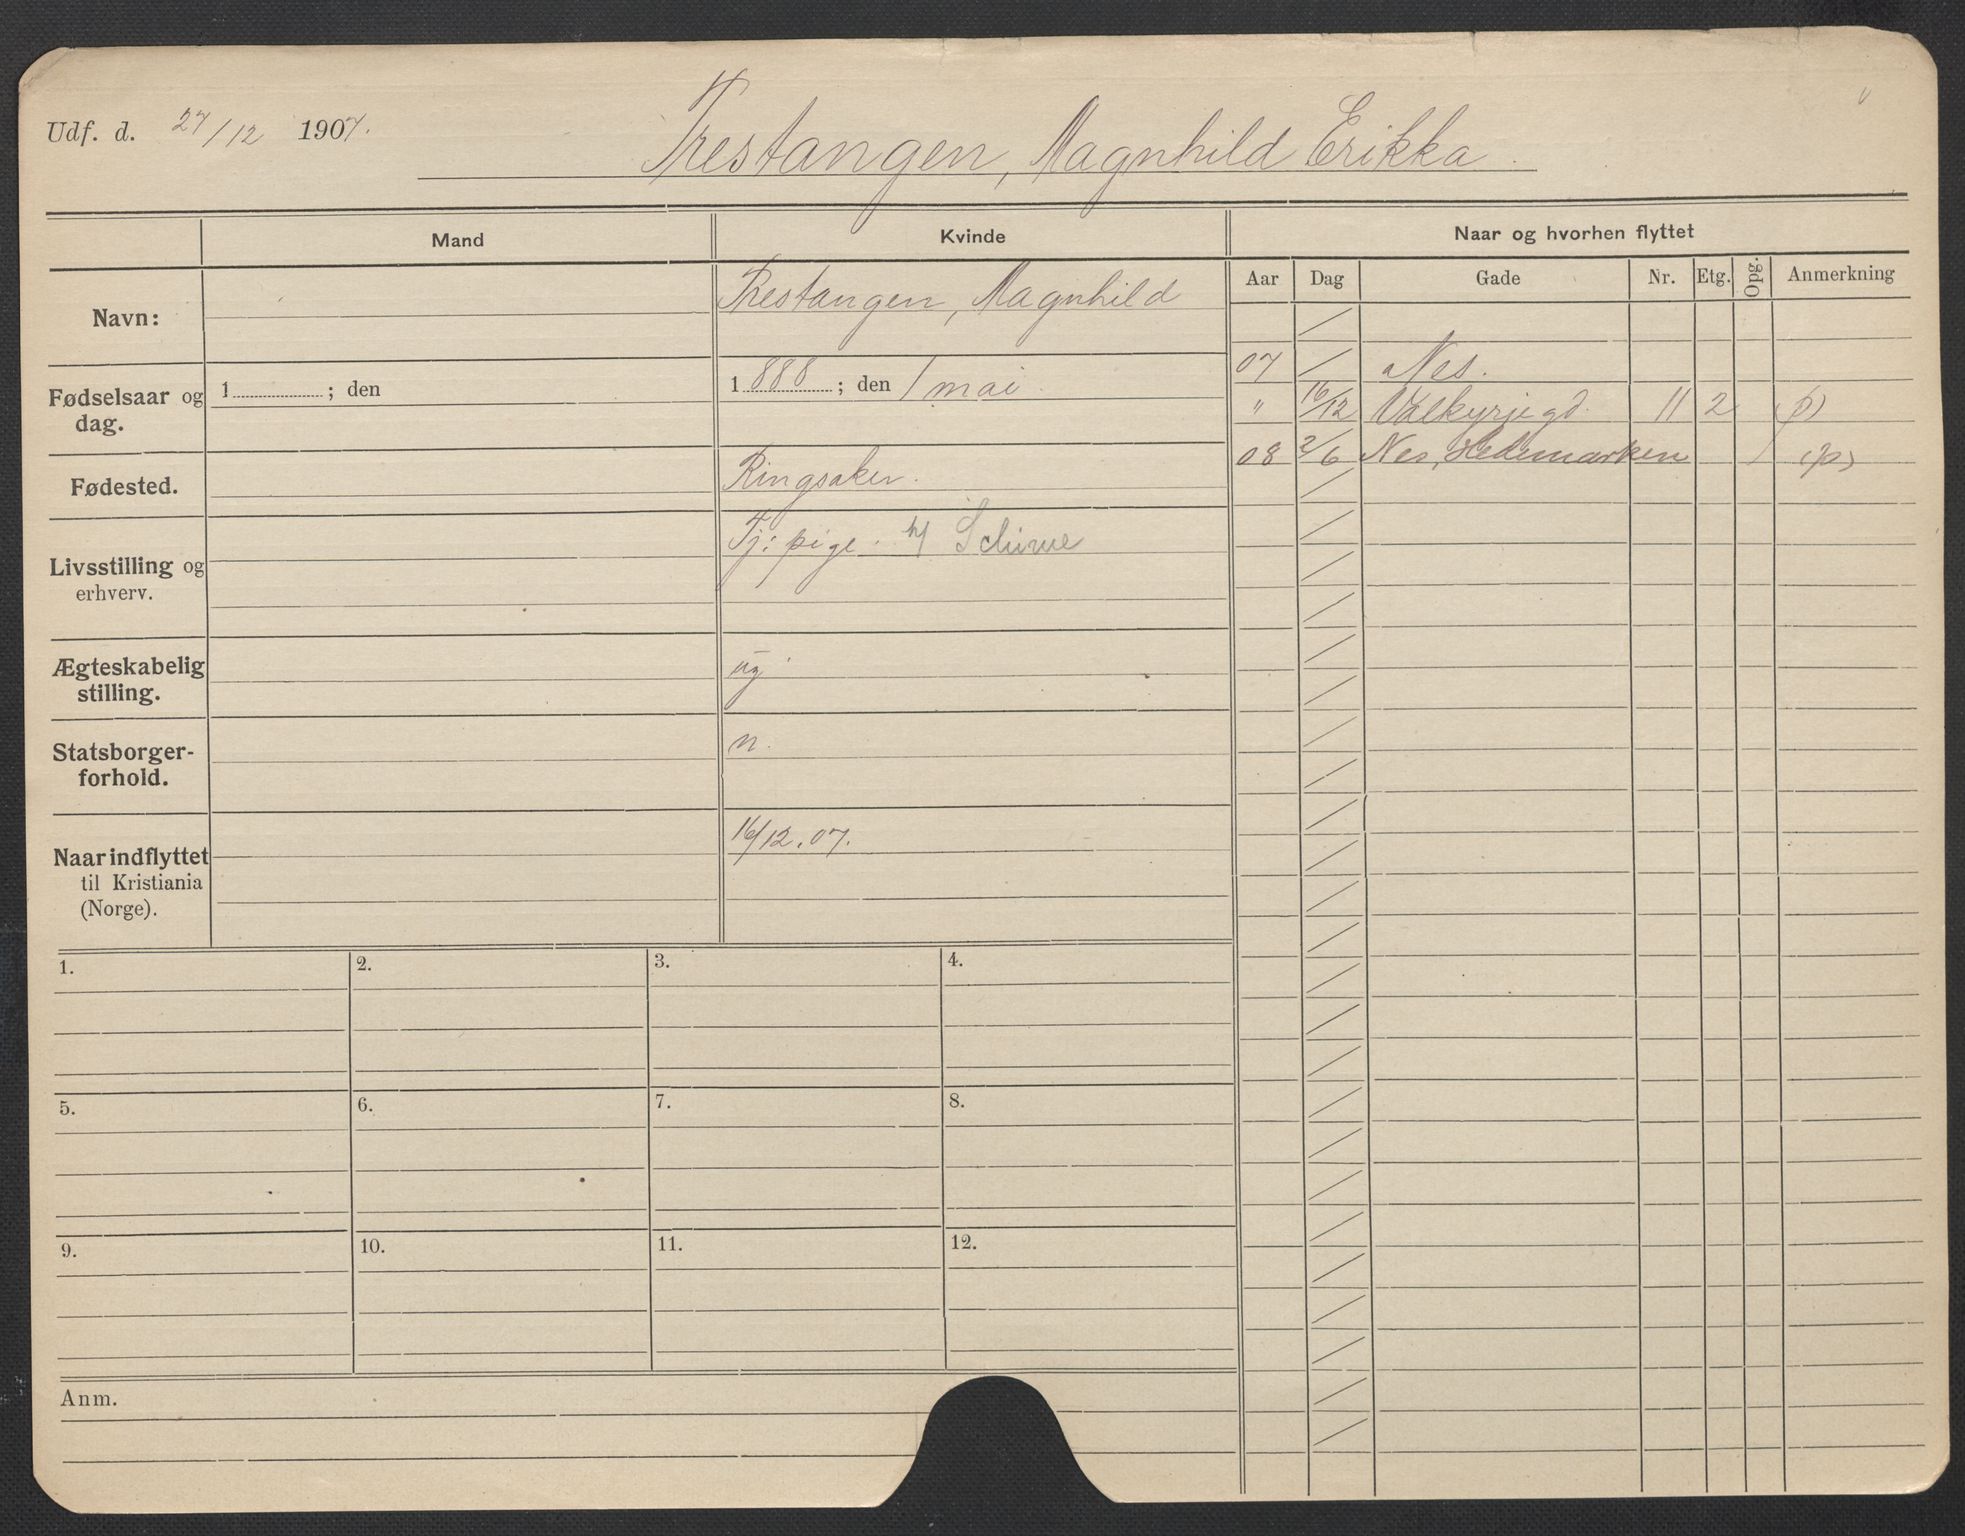 Udf. d. 27/12 1907.
Trestangen, Magnhild Erikka.
Mand
Kvinde
Naar og hvorhen flyttet
Aar Dag Gade Nr. Etg. Opg. Anmerkning
Navn:
Trestangen, Magnhild
Fødselsaar og
dag.
1 ; den
1 888 ; den 1 mai.
Fødested.
Ringsaker.
Livsstilling og
erhverv.
Tj: pige. h/
Ægteskabelig
stilling.
ug.
Statsborger-
forhold.
n.
Naar indflyttet
til Kristiania
(Norge).
16/12. 07.
07 / Nes.
" 16/12 Valkyrjegd. 11 2 (p)
08 2/6 Nes, Hedemarken (p)
1. 2. 3. 4.
5. 6. 7. 8.
9. 10. 11. 12.
Anm.